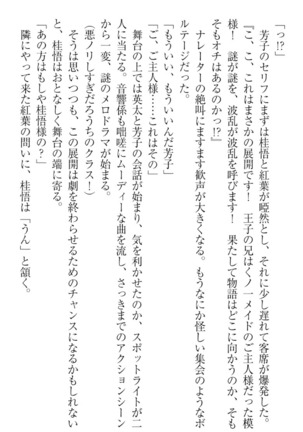 「っ!?」
芳子のセリフにまずは桂悟と紅葉が啞然とし、それに少し遅れて客席が爆発した。
『こ、こ、これはまさかの展開です！　王子の兄はくノ一メイドのご主人様だった模
様！　謎が謎を、波乱が波乱を呼びます！　果たして物語はどこに向かうのか、そも
そもオチはあるのかっ!?』
ナレーターの絶叫にますます歓声が大きくなる。もうなにか怪しい集会のようなボ
ルテージだった。
「もういい、もういいんだ芳子」
「ご、ご主人様……これはその」
舞台の上では英太と芳子の会話が始まり、気を利かせたのか、スポットライトが二
人に当たる。音響係も咄嗟にムーディーな曲を流し、さっきまでのアクションシーン
から一変、謎のメロドラマが始まる。
（悪ノリしすぎだろうちのクラス！）
そうは思いつつも、この展開は劇を終わらせるためのチャンスになるかもしれない
と、桂悟はおとなしく舞台の端に寄る。
「あの方はもしや桂悟様の？」
隣にやって来た紅葉の問いに、桂悟は「うん」と頷く。